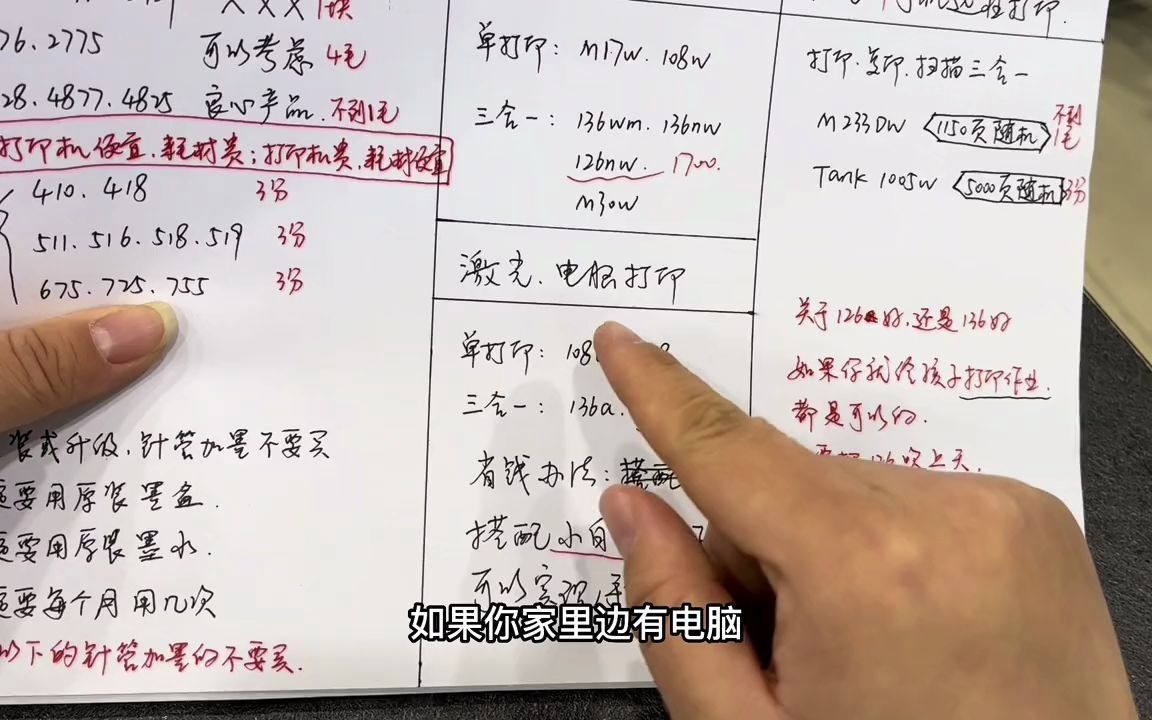 XXX 1块
76.2775 可以考虑 4毛
28.4877.4825 良心产品.不到1毛
打印机便宜.耗材贵;打印机贵.耗材便宜
410.418 3分
511.516.518.519 3分
675.725.755 3分
装或升级.针管加墨不要买
要用原装墨盒.
要用原装墨水.
要每个月用几次
以下的针管加墨的不要买.
单打印: M17W.108W
三合一: 136wm.136nw
126nw. 1700.
M30W
激光.电脑打印
单打印: 108
三合一: 136a.
省钱办法:
搭配小白
可以实现
打印.复印.扫描三合一
M233DW 1150页随机 不到1毛
Tank 1005W 5000页随机 3分
关于126好.还是136好
如果你就给孩子打印作业.
都是可以的.
如果你家里边有电脑